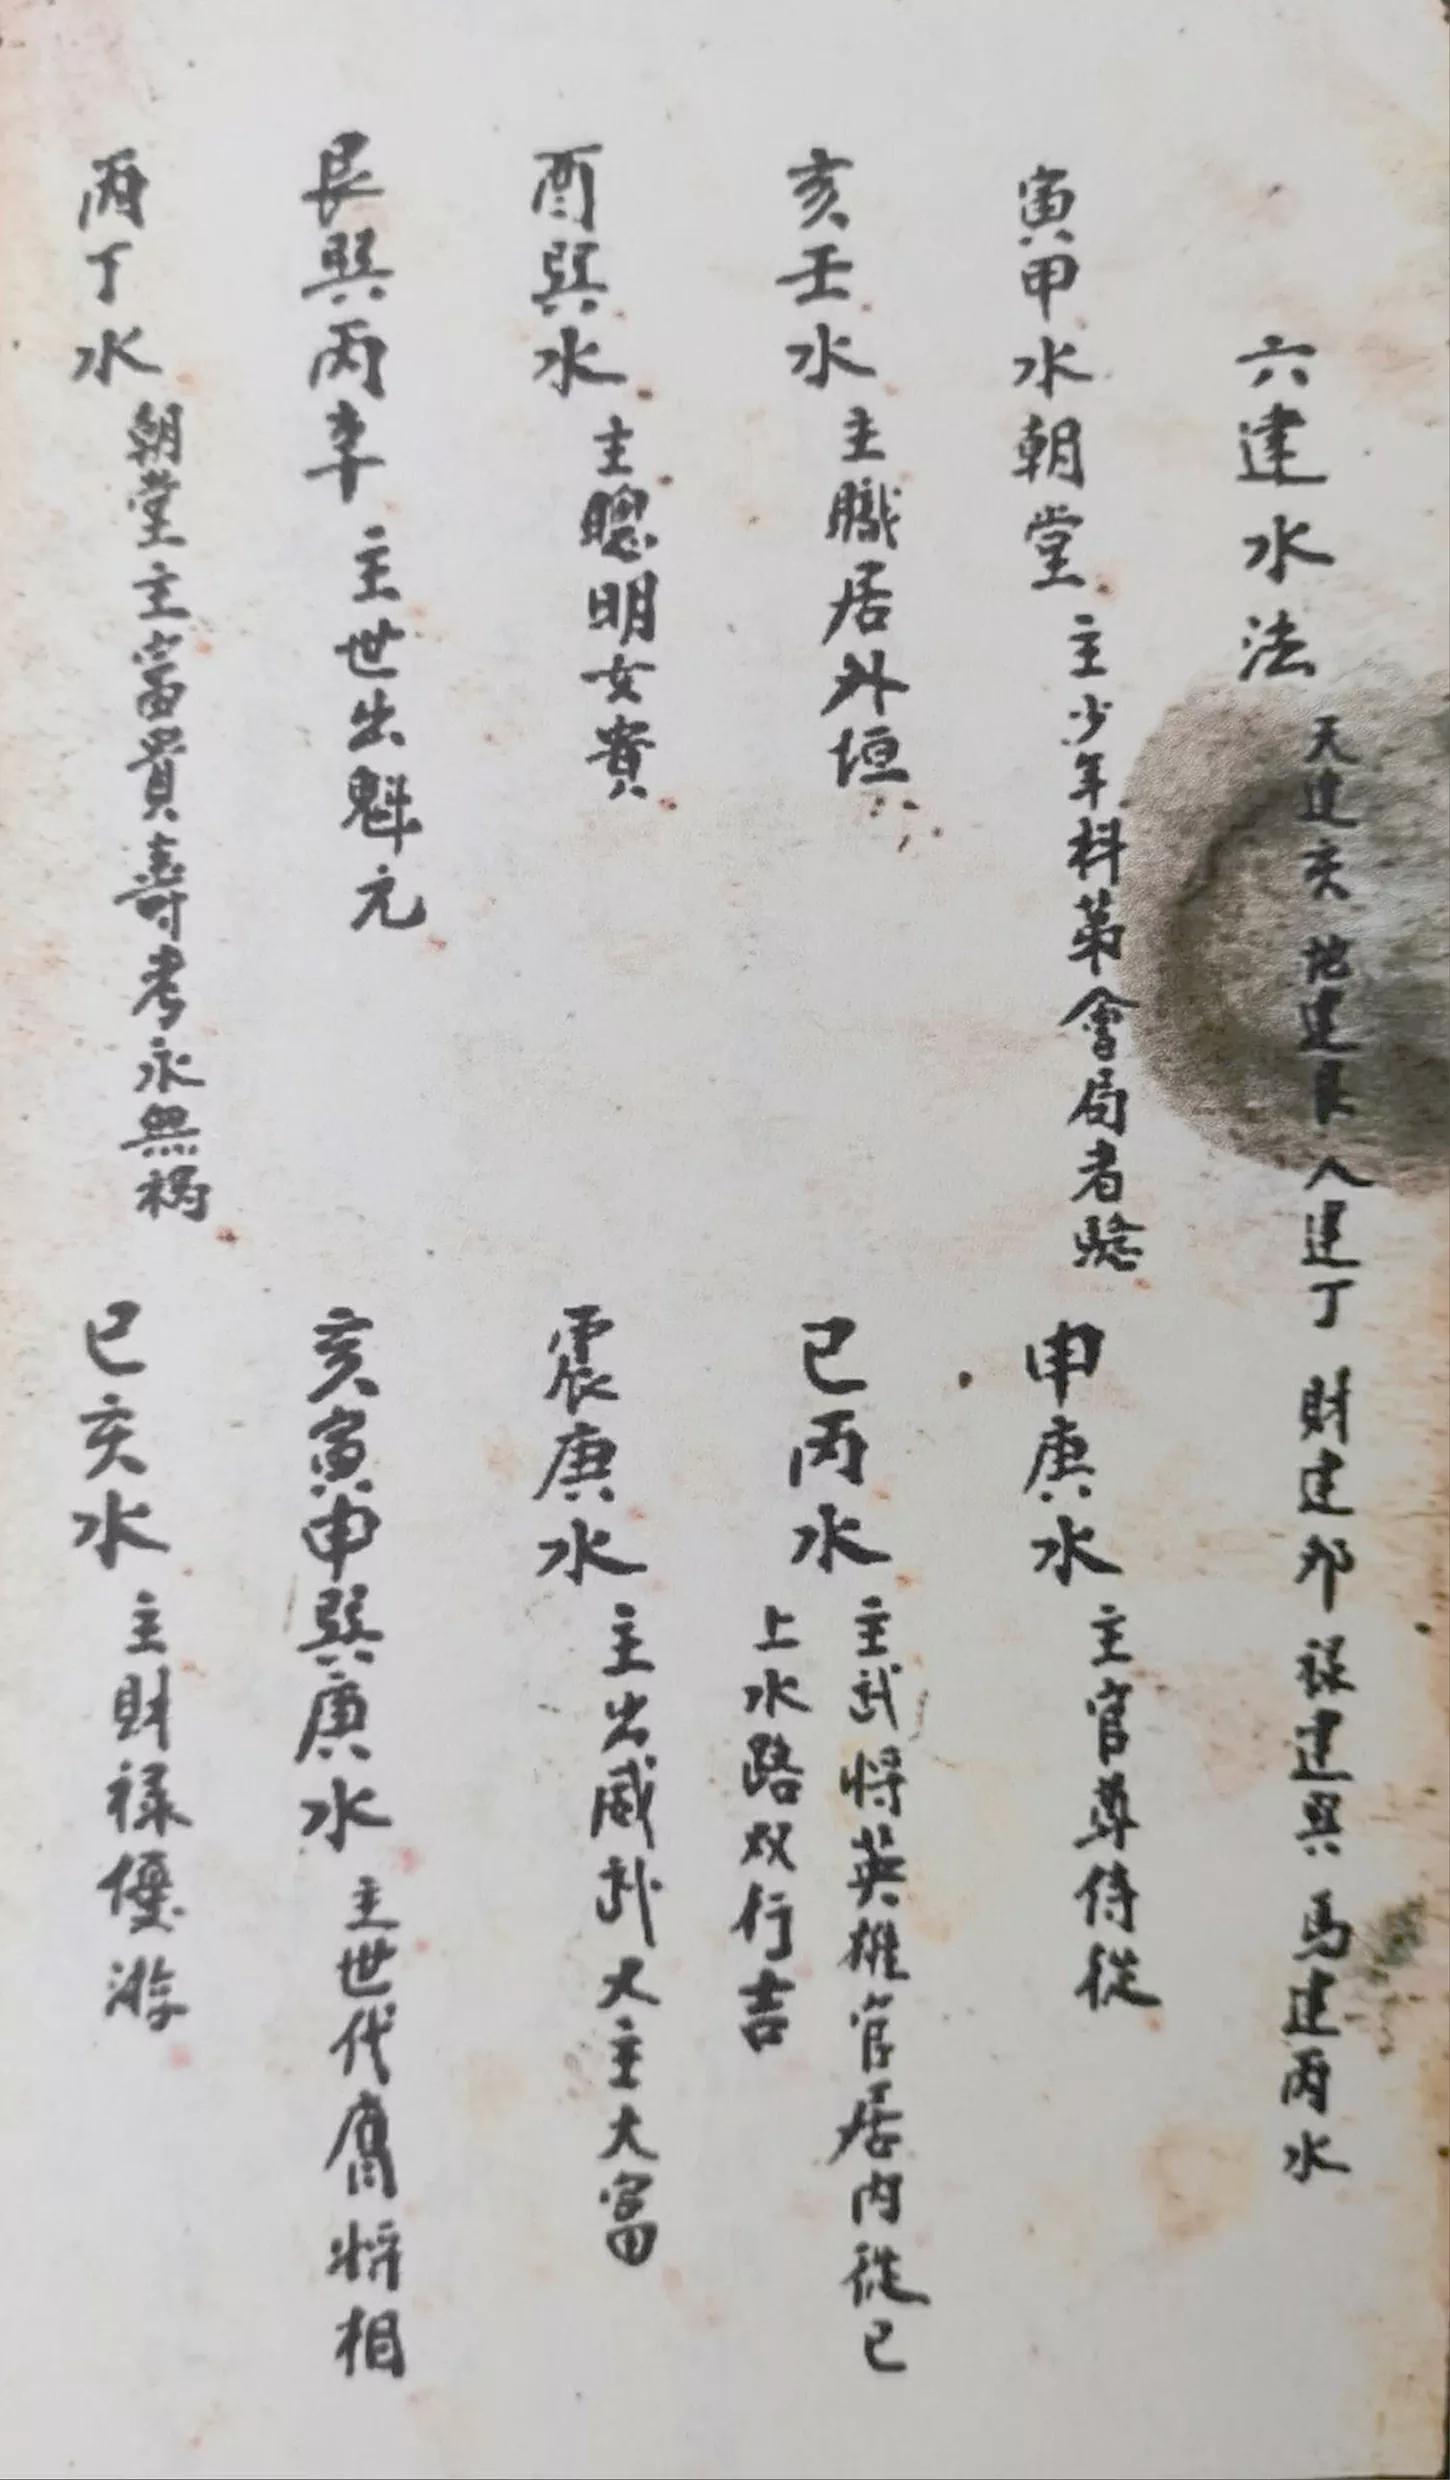 六建水法 天建亥 地建艮 人建丁 財建卯 禄建巽 馬建丙水
寅甲水朝堂 主少年科第會局者驗
申庚水 主官尊侍從
亥壬水 主職居外垣
巳丙水 主武將英雄官居內從巳
上水路双行吉
酉巽水 主聰明女貴
震庚水 主出威武又主大富
艮巽丙辛 主世出魁元
亥寅申巽庚水 主世代膺將相
丙丁水 朝堂主富貴壽考永無禍
巳亥水 主財禄優游